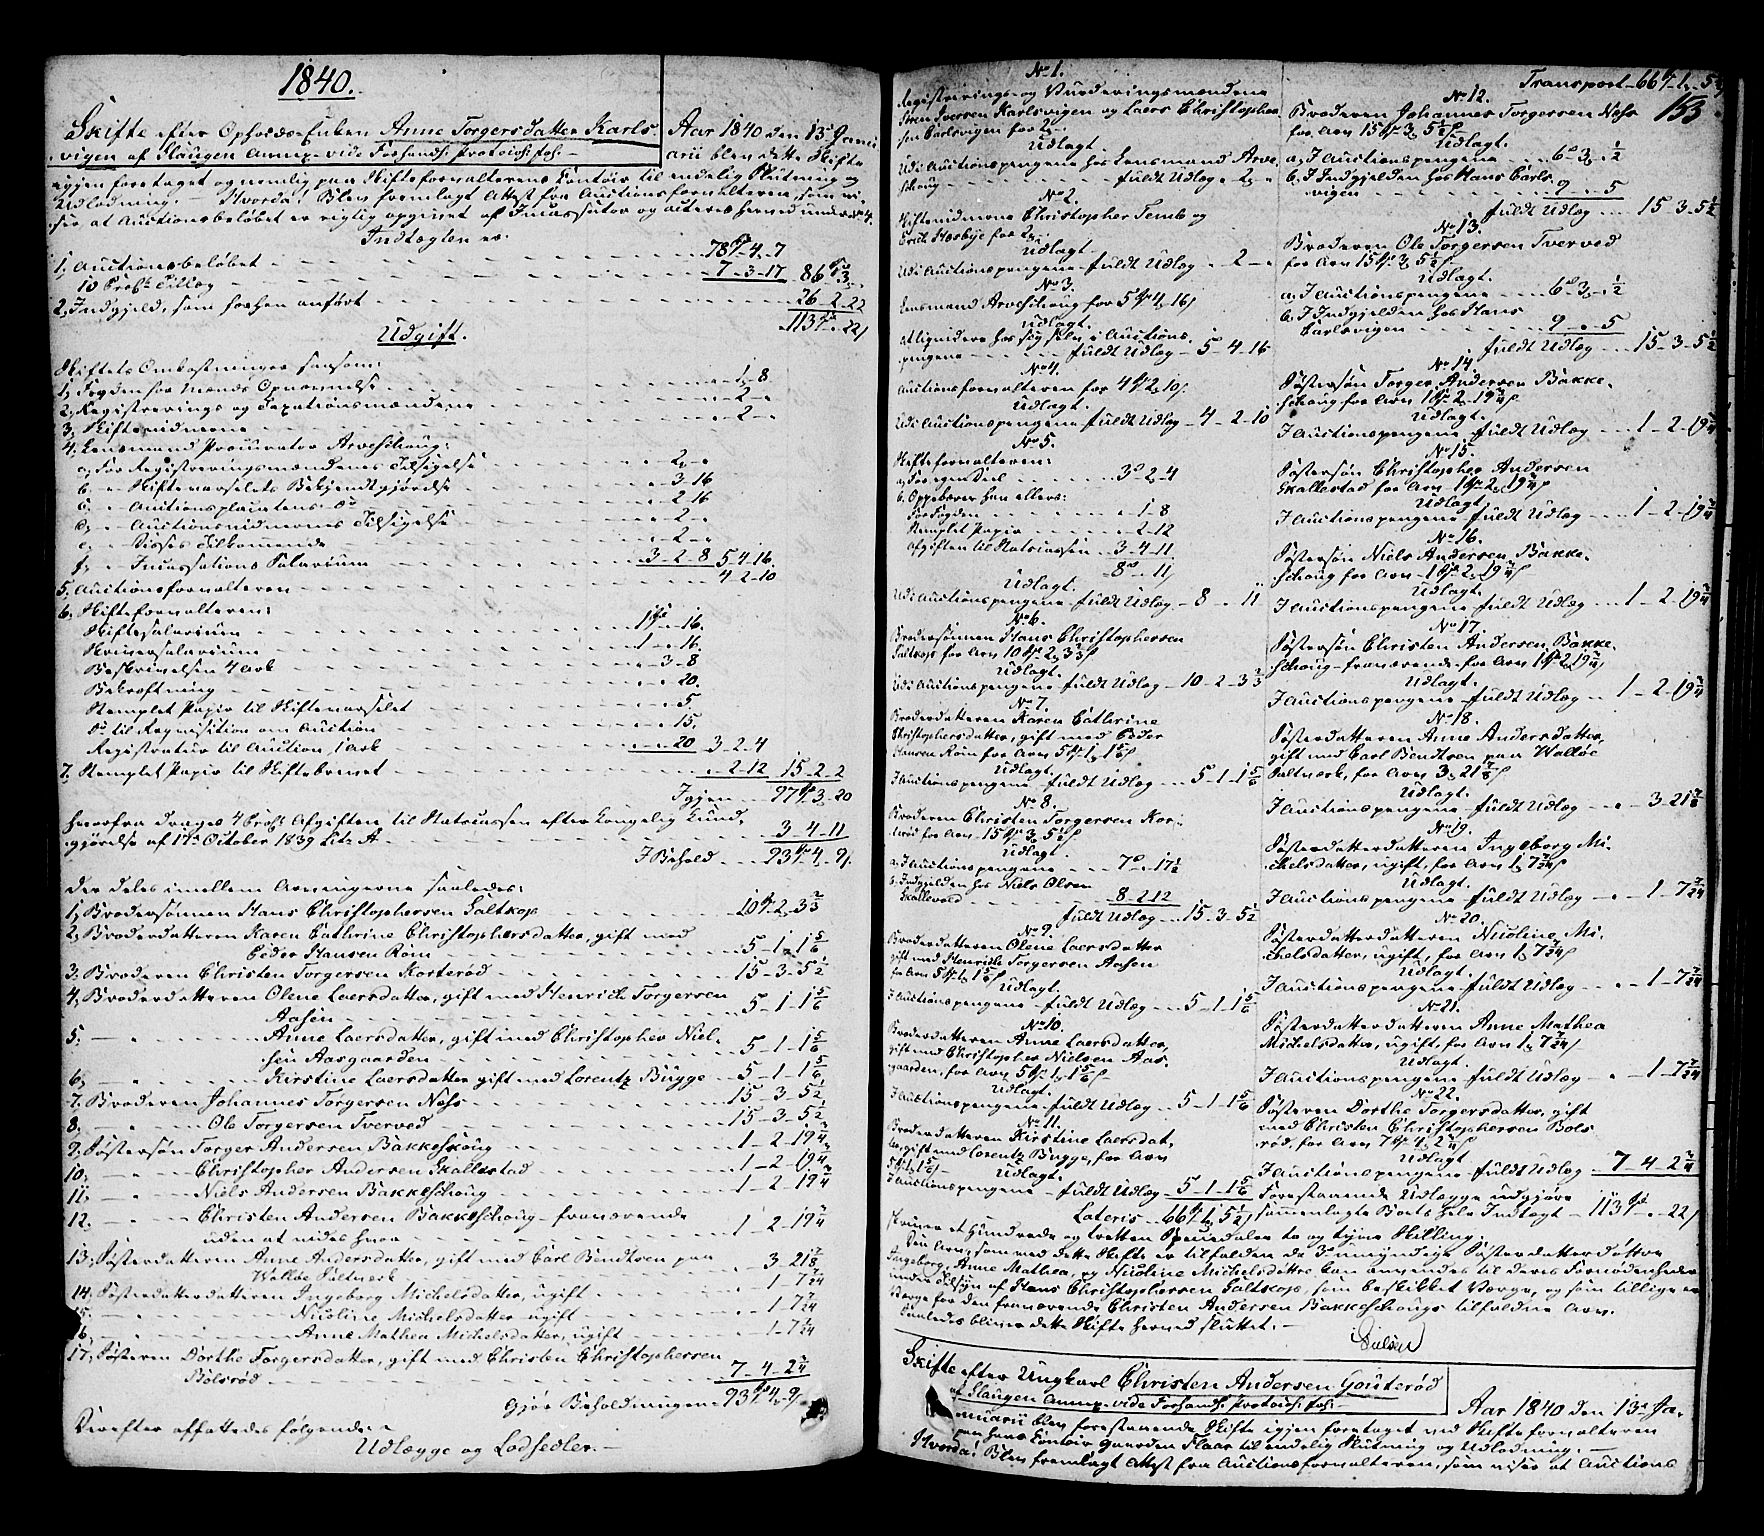 1840.
Skifte efter Ophols-Enken Anne Torgersdatter Karls-
vigen af Slaugen Annex - vide Forhandl: Protocol: fol: -
Aar 1840 den 13de Janu-
arii blev dette Skifte
igjen foretaget og nemlig paa Skifteforvalterens Contoir til endelig Slutning og
Udlodning. - Hvorda! Blev fremlagt Attest fra Auctionsforvalteren, som vi-
ser at Auctionsbeløbet er rigtig opgivet af Incassator og acteres herved under 4.
Indtægten er:
1, Auctionsbeløbet - - - 78 - 4 - 7
10 Proct Tillæg - - - 7 - 3 - 17 86 - 3 -
2, Indgjeld, som forhen anført - - - 26 - 2 - 22
113 - " - 22
Udgift.
Skiftets Omkostninger saasom:
1, Fogden for Mænds Opnævnelse - - - 1 - 8
2, Registrerings og Taxationsmændene - - - 2 - "
3, Skiftevidnerne - - - 2 - "
4, Lensmand Procurator Arveschoug:
a, For Registreringsmændenes Tilsigelse - - - 2 - "
b, " Skiftevarselets Bekjendtgjørelse - - - 3 - 16
c, " Auctionsplacatens Do - - - 2 - 16
d, " Auctionsvidnernes Tilsigelse - - - 2 - "
e, " Disses Tilkommende - - - 2 - "
f, " Incassations Salarium - - - 3 - 2 - 8 5 - 4 - 16
5, Auctionsforvalteren - - - 4 - 2 - 10
6, Skifteforvalteren:
Skiftesalarium - - - 1 - " - 16.
Skriversalarium - - - 1 - " - 16.
Beskrivelsen 4 Ark - - - 3 - 8
Bekræftning - - - " - 20.
Stemplet Papir til Skiftevarselet - - - " - 5
Do til Reqvisition om Auction - - - " - 15.
Registratur til Auction 1 Ark - - - " - 20 3 - 2 - 4
7, Stemplet Papir til Skiftebrevet - - - 2 - 12 15 - 2 - 2
Igjen - - - 97 - 3 - 20
hvorfra drages 4 Proct Afgiften til Statscassen efter kongelig Kund-
gjørelse af 17de October 1839 Lit: A - - - 3 - 4 - 11
I Behold - - - 93 - 4 - 9
der deles imellem Arvingerne saaledes:
1, Brodersønnen Hans Christophersen Saltkop - - - 10 - 2 - 3 2/3
2, Broderdatteren Karen Cathrine Christophersdatter, gift med
Peder Hansen Röm - - - 5 - 1 - 1 5/6
3, Broderen Christen Torgersen Korterød - - - 15 - 3 - 5 1/2
4, Broderdatteren Olene Laersdatter, gift med Henrich Torgersen
Aasen - - - 5 - 1 - 1 5/6
5, - " - Anne Laersdatter, gift med Christopher Niel-
sen Aasgaarden - - - 5 - 1 - 1 5/6
6, - " - Kirstine Laersdatter gift med Lorentz Bugge - - 5 - 1 - 1 5/6
7, Broderen Johannes Torgersen Næss - - - 15 - 3 - 5 1/2
8, - " - Ole Torgersen Tverved - - - 15 - 3 - 5 1/2
9, Søstersøn Torger Andersen Bakkeskoug - - - 1 - 2 - 19 3/4
10, - " - Christopher Andersen Skallestad - - - 1 - 2 - 19 3/4
11, - " - Niels Andersen Bakkeschoug - - - 1 - 2 - 19 3/4
12, - " - Christen Andersen Bakkeschoug - fraværende
uden at vides hvor - - - 1 - 2 - 19 3/4
13, Søsterdatteren Anne Andersdatter, gift med Carl Bendtsen paa
Valløe Saltværk - - - 3 - 21 7/8
14, Søsterdatterdatteren Ingeborg Michelsdatter, ugift - - - 1 - 7 7/24
15. - - - Nicoline Michelsdatter ugift - - - 1 - 7 7/24
16, - - - Anne Mathea Michelsdatter, ugift - - - 1 - 7 7/24
17, Søsteren Dorthe Torgersdatter, gift med Christen Christophersen
Bolsrød - - - 7 - 4 - 2 3/4
Gjør Beholdningen 93 - 4 - 9
Derefter affattedes følgende:
Udlægge og Lodsedler. -
No 1.
Registrerings- og Vurderingsmændene
Iver Iversen Karlsvigen og Laers Christopher-
sen Carlsvigen for 2
Udlagt.
Udi Auctionspengene hos Lensmand Arve-
schoug - - - fuldt Udlæg - 2 - "
No 2.
Skiftevidnerne Christopher Temb og
Erich Hæsbye for 2
Udlagt
Udi Auctionspengene - fuldt Udlæg - - 2 - "
No 3.
Lensmand Arveschoug for 5 - 4 - 16
Udlagt.
at liqvidere hos sig selv i Auctions-
pengene - - - fuldt Udlæg - 5 - 4 - 16
No 4.
Auctionsforvalteren for 4 - 2 - 10
Udlagt.
Udi Auctionspengene - fuldt Udlæg - 4 - 2 - 10
No 5.
Skifteforvalteren:
a, For egen Deel - - - 3 - 2 - 4
b, Oppebærer han ellers:
For Fogden - - - 1 - 8
Stemplet Papir - - - 2 - 12
Afgiften til Statscassen - - 3 - 4 - 11.
8 - " - 11
Udlagt.
Udi Auctionspengene - fuldt Udlæg - 8 - " - 11
No 6.
Brodersønnen Hans Christophersen
Saltkop for Arv 10 - 2 - 3 2/3
Udlagt.
Udi Auctionspengene - fuldt Udlæg - 10 - 2 - 3 2/3
No 7.
Broderdatteren Karen Cathrine
Christophersdatter, gift med Peder
Hansen Röm for Arv 5 - 1 - 1 5/6
Udlagt.
I Auctionspengene - fuldt Udlæg - - 5 - 1 - 1 5/6
No 8.
Broderen Christen Torgersen Kor-
terød for Arv - 15 - 3 - 5 1/2
Udlagt.
a, I Auctionspengene - - - 7 - " - 17 1/2
b, Indgjelden hos Niels Olsen
Skallevold - - - 8 - 2 - 12
fuldt Udlæg - - 15 - 3 - 5 1/2
No 9.
Broderdatteren Olene Laersdatter
gift med Henrich Torgersen Aasen
for Arv 5 - 1 - 1 5/6
Udlagt.
I Auctionspengene - fuldt Udlæg - - 5 - 1 - 1 5/6
No 10.
Broderdatteren Anne Laersdatter,
gift med Christopher Nielsen Aas-
gaarden, for Arv 5 - 1 - 1 5/6
Udlagt.
I Auctionspengene fuldt Udlæg - - 5 - 1 - 1 5/6
No 11.
Broderdatteren Kirstine Laersdat-
ter, gift med Lorentz Bugge, for Arv
5 - 1 - 1 5/6
Udlagt.
I Auctionspengene - fuldt Udlæg - 5 - 1 - 1 5/6
Lateris - - 66 - 1 - 5 1/2
Transport - 66 - 1 - 5 1/2
153
No 12.
Broderen Johannes Torgersen Næss
for Arv 15 - 3 - 5 1/2
Udlagt.
a, I Auctionspengene - - - 6 - 3 - 1/2
b, I Indgjelden hos Hans Carls-
vigen - - - 9 - " - 5
fuldt Udlæg - - - 15 - 3 - 5 1/2
No 13.
Broderen Ole Torgersen Tverved
for Arv 15 - 3 - 5 1/2
Udlagt.
a, I Auctionspengene - - - 6 - 3 - 1/2
b, I Indgjelden hos Hans
Carlsvigen - - - 9 - " - 5
fuldt Udlæg - - - 15 - 3 - 5 1/2
No 14
Søstersøn Torger Andersen Bakke-
schoug for Arv 1 - 2 - 19 3/4
Udlagt.
I Auctionspengene - fuldt Udlæg - - - 1 - 2 - 19 3/4
No 15.
Søstersøn Christopher Andersen
Skallestad for Arv 1 - 2 - 19 3/4
Udlagt.
I Auctionspengene - fuldt Udlæg - - - 1 - 2 - 19 3/4
No 16.
Søstersøn Niels Andersen Bakke-
schoug for Arv - 1 - 2 - 19 3/4
Udlagt.
I Auctionspengene - fuldt Udlæg - - - 1 - 2 - 19 3/4
No 17.
Søstersøn Christen Andersen Bakke-
schoug - fraværende for Arv 1 - 2 - 19 3/4
Udlagt.
I Auctionspengene - fuldt Udlæg - - 1 - 2 - 19 3/4
No 18.
Søsterdatteren Anne Andersdatter
gift med Carl Bendtsen paa Valløe
Saltværk, for Arv 3 - 21 7/8
Udlagt.
I Auctionspengene - fuldt Udlæg - - " - 3 - 21 7/8
No 19.
Søsterdatterdatteren Ingeborg Mi-
chelsdatter, ugift, for Arv 1 - 7 7/24
Udlagt.
I Auctionspengene - fuldt Udlæg - - " - 1 - 7 7/24
No 20.
Søsterdatterdatteren Nicoline Mi-
chelsdatter, ugift, for Arv 1 - 7 7/24
Udlagt.
I Auctionspengene - fuldt Udlæg - - " - 1 - 7 7/24
No 21.
Søsterdatterdatteren Anne Mathea
Michelsdatter, ugift, for Arv 1 - 7 7/24
Udlagt.
I Auctionspengene - fuldt Udlæg - - " - 1 - 7 7/24
No 22.
Søsteren Dorthe Torgersdatter, gift
med Christen Christophersen Bols-
rød, for Arv 7 - 4 - 2 3/4
Udlagt
I Auctionspengene - fuldt Udlæg - - 7 - 4 - 2 3/4
Forestaaende Udlægge udgjøre
sammenlagte Boets hele Indtægt - 113 - " - 22
skriver et Hundrede og tretten Speciedaler to og tyve Skilling.
Den Arv, som ved dette Skifte er tilfalden de 3 umyndige Søsterdatterdøttre
Ingeborg, Anne Mathea, og Nicoline Michelsdøttre kan anvendes til deres Fornødenheder
under Tilsyn af Hans Christophersen Saltkop, som beskikket Værge, og som tillige er
Værge for den fraværende Christen Andersen Bakkeschougs tilfaldne Arv.
Saaledes bliver dette Skifte herved sluttet. -
Skifte efter Ungkarl Christen Andersen Gouterød
af Slaugen Annex - vide Forhandl: Protocol: fol: -
Aar 1840 den 13de Ja-
nuarii blev forestaaende Skifte igjen foretaget ved Skifteforvalteren
paa hans Contoir Gaarden Flaar til endelig Slutning og Udlodning. -
Hvorda! Blev fremlagt Attest fra Auctionsforvalteren, som viser at Auctions